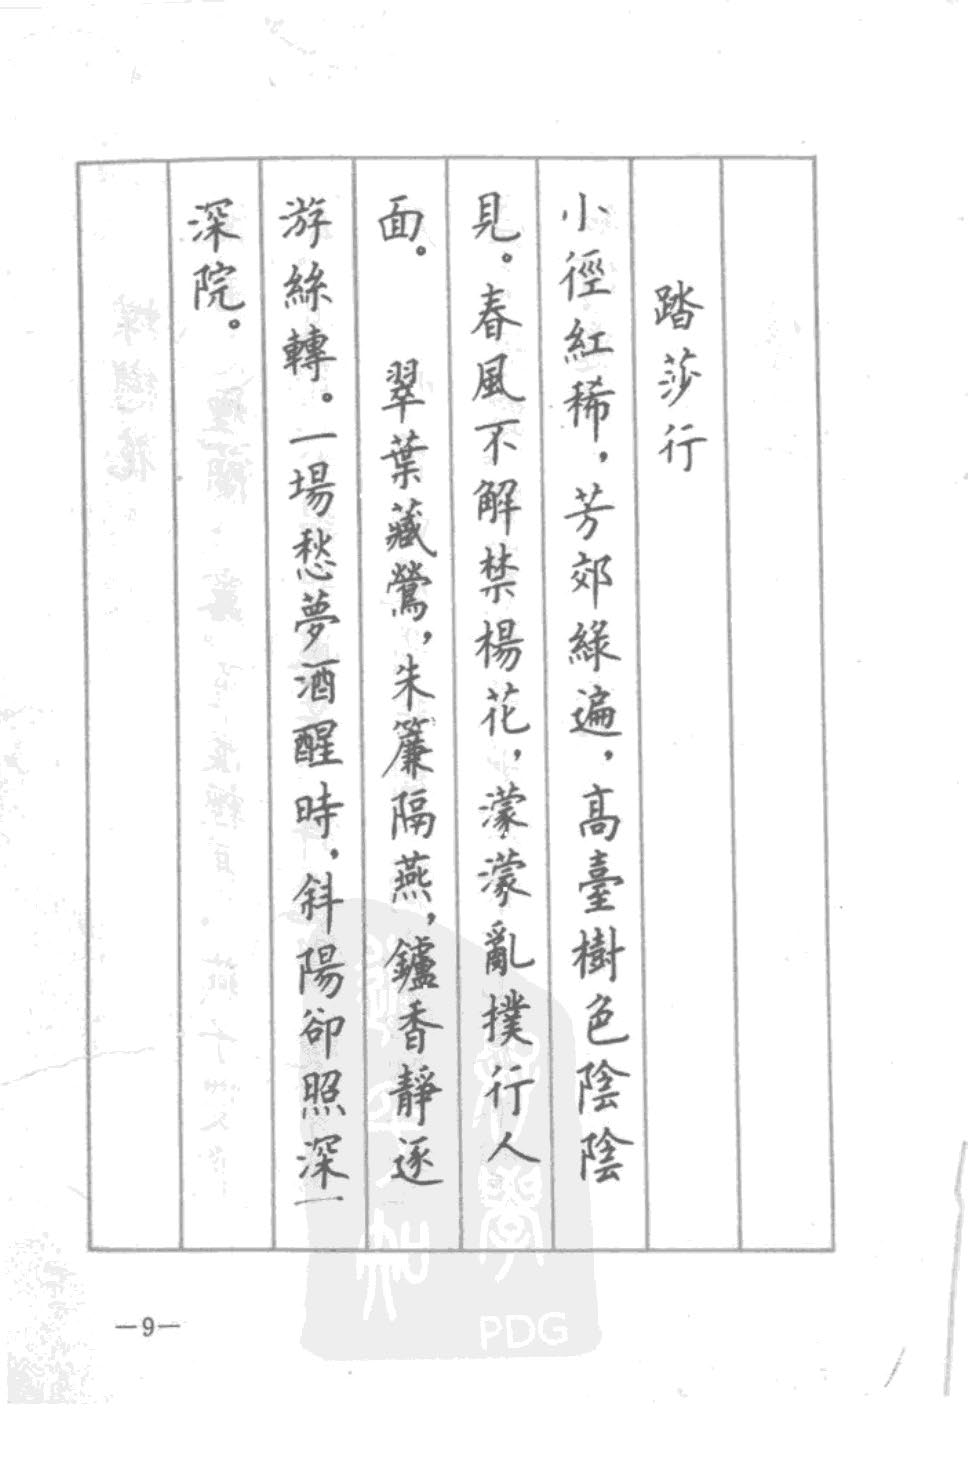 踏莎行
小徑紅稀，芳郊綠遍，高臺樹色陰陰
見。春風不解禁楊花，濛濛亂撲行人
面。　翠葉藏鶯，朱簾隔燕，鑪香靜逐
游絲轉。一場愁夢酒醒時，斜陽卻照深
深院。
—9—
PDG